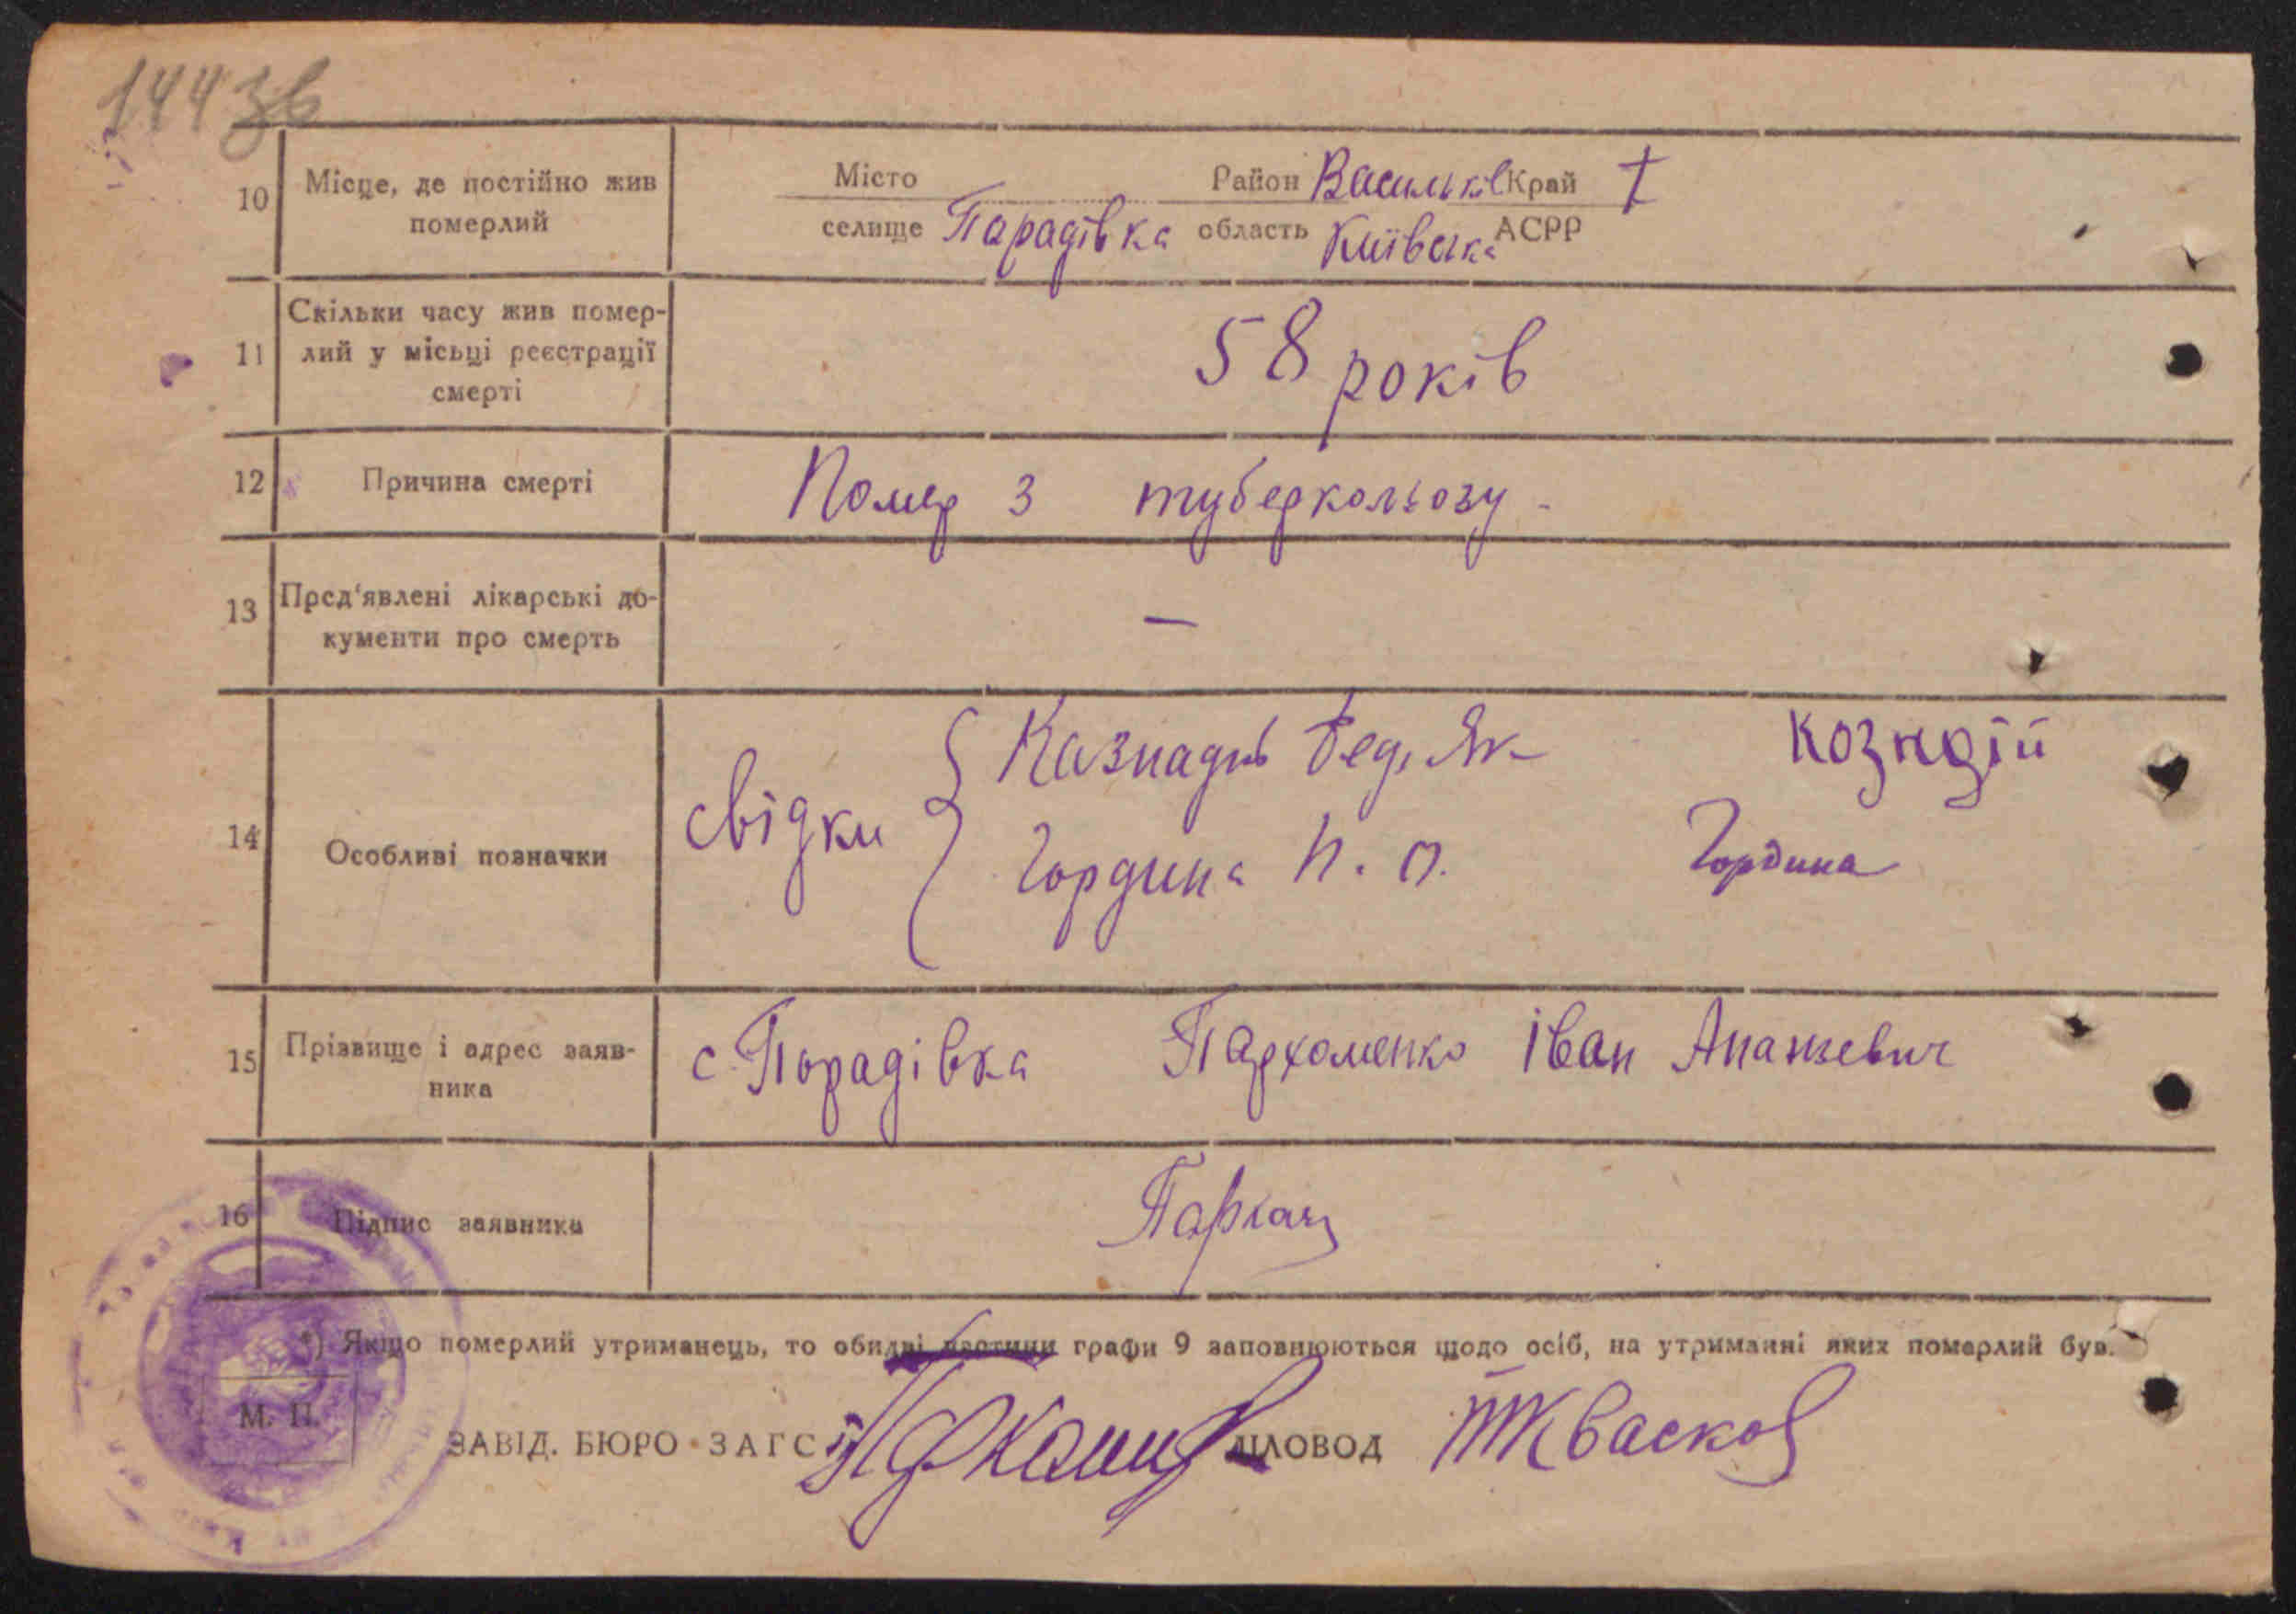 144 зв
10 Місце, де постійно жив
померлий
Місто Район Васильків Край
селище Парадівка область Київська АСРР
11 Скільки часу жив помер-
лий у місьці реєстрації
смерті
58 років
12 Причина смерті
Помер з туберкольозу -
13 Пред'явлені лікарські до-
кументи про смерть
—
14 Особливі позначки
свідки
Фед. Як Козндій
Гордина П. О. Гордина
15 Прізвище і адрес заяв-
ника
с. Порадівка Пархоменко Іван Ананьевич
16 Підпис заявника
*) Якщо померлий утриманець, то обидві частини графи 9 заповнюються щодо осіб, на утриманні яких померлий був.
М. П.
ЗАВІД. БЮРО ЗАГС ДІЛОВОД